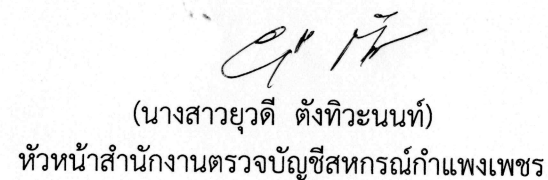 (นางสาวยุวดี ตังทิวะนนท์)
หัวหน้าสำนักงานตรวจบัญชีสหกรณ์กำแพงเพชร